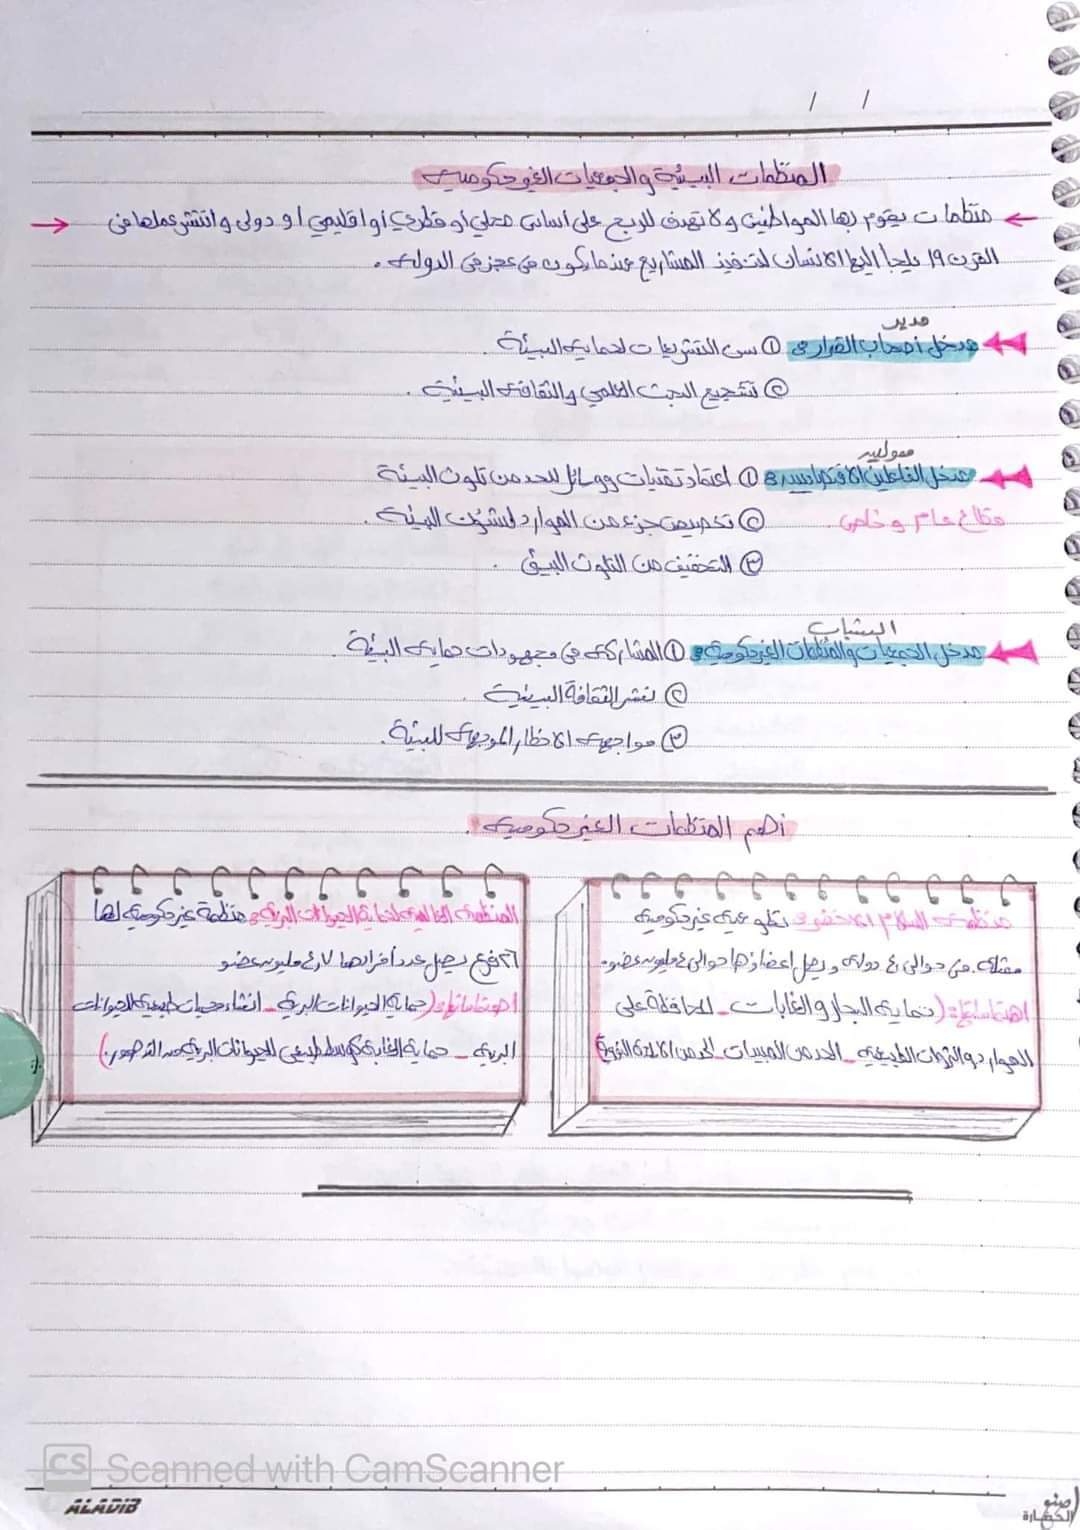 / /
المنظمات البيئية والجمعيات الغير حكوميه
منظمات يقوم بها المواطنين ولا تهدف للربح على أساس محلي أو قطري أو اقليمي او دولى وانتشر عملها فى
القرن ١٩ يلجأ اليها الانسان لتنفيذ المشاريع عندما يكون في عجز في الدوله .
مدير
مدخل أصحاب القرار : ① سن التشريعات لحمايه البيئة .
② تشجيع البحث العلمي والثقافه البيئية .
ممولين
مدخل الفاعلين الاقتصاديين : ① اعتماد تقنيات ووسائل للحد من تلوث البيئة
قطاع عام وخاص . ② تخصيص جزء من الموارد لشؤون البيئه .
③ التخفيف من التلوث البيئي .
الشباب
مدخل الجمعيات والمنظمات الغير حكومية : ① المشاركه في مجهودات حمايه البيئة .
② نشر الثقافة البيئية .
③ مواجهه الاخطار الموجهه للبيئة .
أهم المنظمات الغير حكوميه .
منظمه السلام الاخضر : تطوعيه غير حكوميه
ممثله من حوالى ٤٠ دوله ويصل اعضاؤها حوالى ٤ مليون عضو .
اهتماماتها : (حمايه البحار والغابات _ المحافظة على
الموارد والثروات الطبيعيه _ الحد من المبيدات _ الحد من الاسلحة النووية)
المنظمه العالميه لحماية الحيوانات البريه : منظمة غير حكوميه لها
٢٦ فرع يصل عدد أفرادها ٤,٧ مليون عضو
اهتماماتها : (حمايه الحيوانات البريه _ انشاء محميات طبيعيه للحيوانات
البريه _ حماية الغابة كوسط طبيعي للحيوانات البريه من التدهور .)
CS Scanned with CamScanner
ALADIB
صنو الحضارة